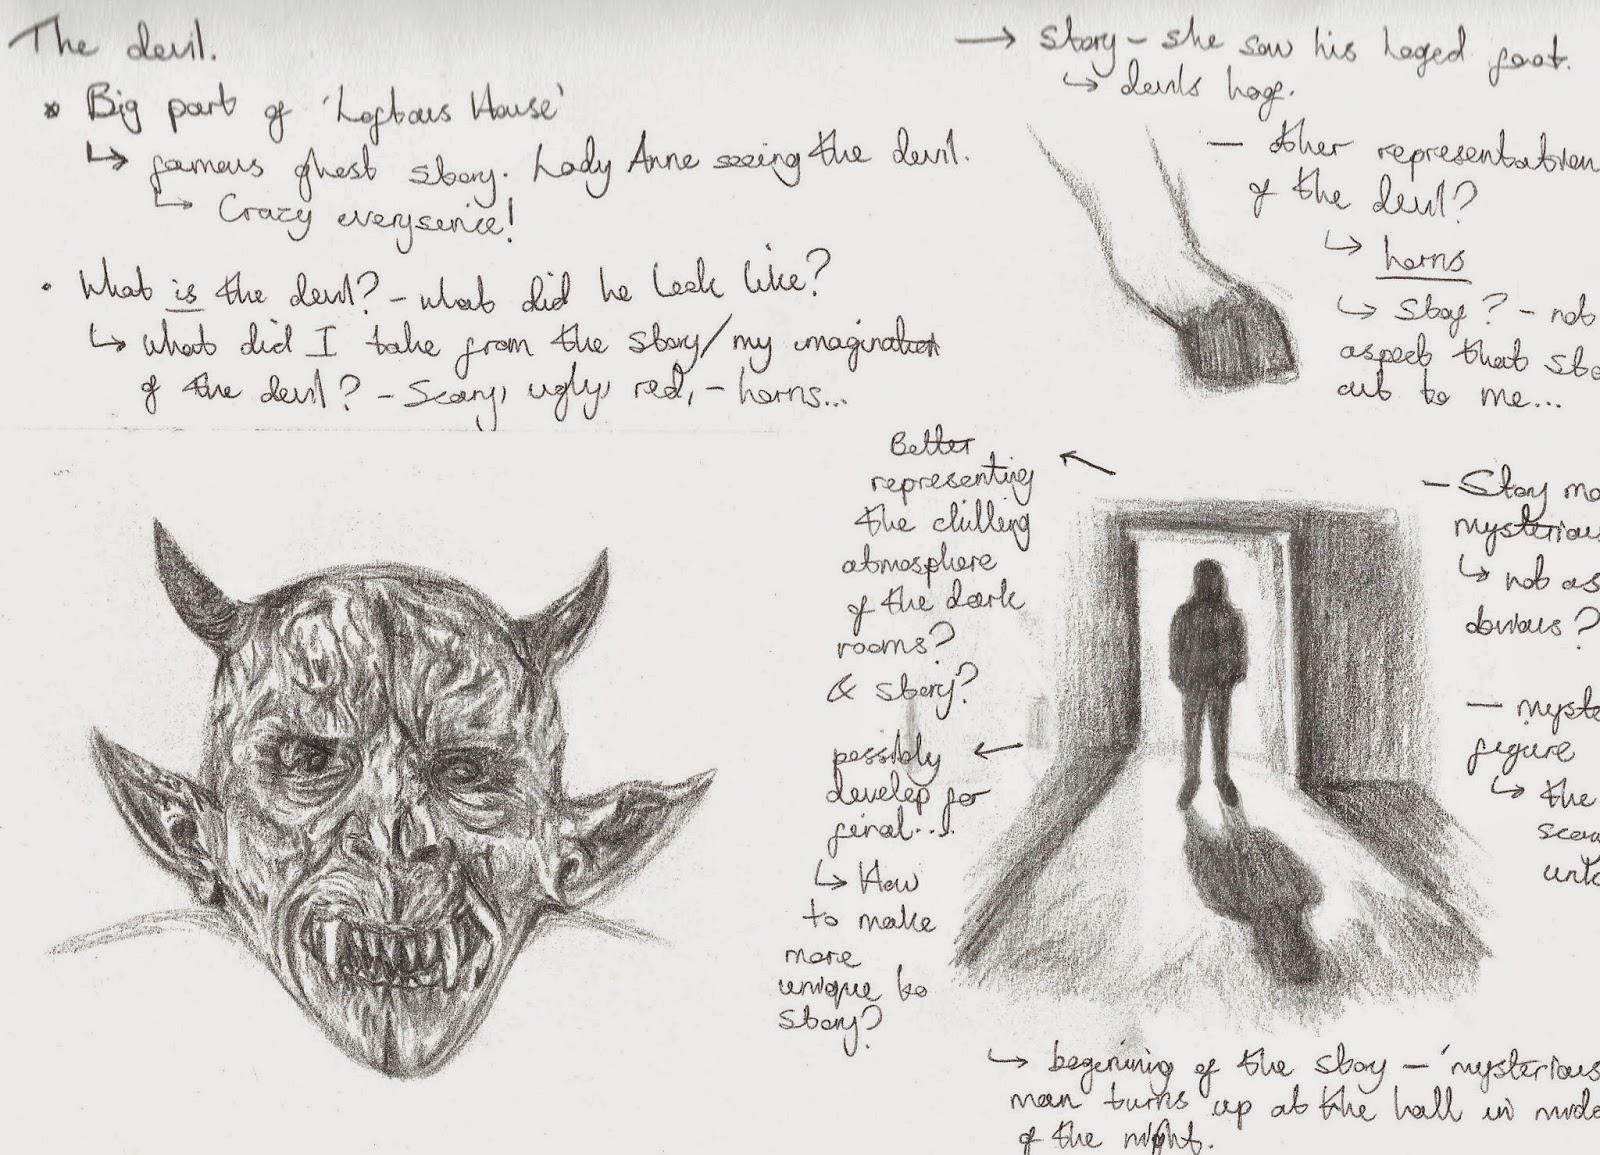 The devil.
* Big part of 'Loftous House'
↳ famous ghost story. Lady Anne seeing the devil.
↳ Crazy everysence!
• What is the devil? - what did he look like?
↳ what did I take from the story/my imagination
of the devil? - Scary, ugly, red, - horns...
→ Story - she saw his hoged foot.
↳ devils hoof.
- other representation
of the devil?
↳ horns
↳ Story? - not
aspect that sto
out to me...
Better
representing
the chilling
atmosphere
of the dark
rooms?
& story?
possibly
develop for
final....
↳ How
to make
more
unique to
story?
- Story mo
mysterious
↳ not as
obvious?
- myste
figure
↳ the
begenning of the story - 'mysterious
man turns up at the hall in midd
of the night.